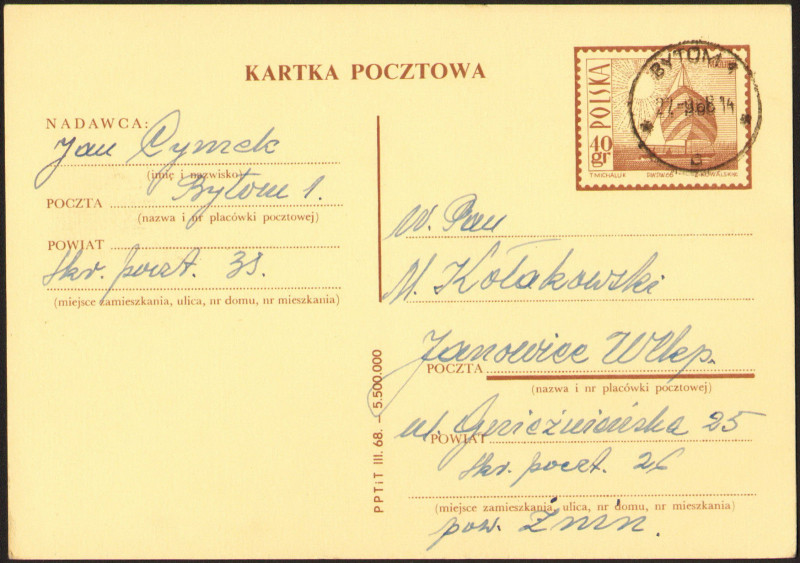 KARTKA POCZTOWA
NADAWCA:
Jan Cymek
(imię i nazwisko)
Bytom 1.
POCZTA
(nazwa i nr placówki pocztowej)
POWIAT
Skr. poczt. 39.
(miejsce zamieszkania, ulica, nr domu, nr mieszkania)
POLSKA
40 gr
T. MICHALUK
BYTOM 1
W. Pan
M. Kołakowski
Janowiec Wlkp.
POCZTA
(nazwa i nr placówki pocztowej)
ul. 25
POWIAT
Skr. poczt. 26
(miejsce zamieszkania, ulica, nr domu, nr mieszkania)
pow. Żnin.
PPTiT III. 68. – 5.500.000